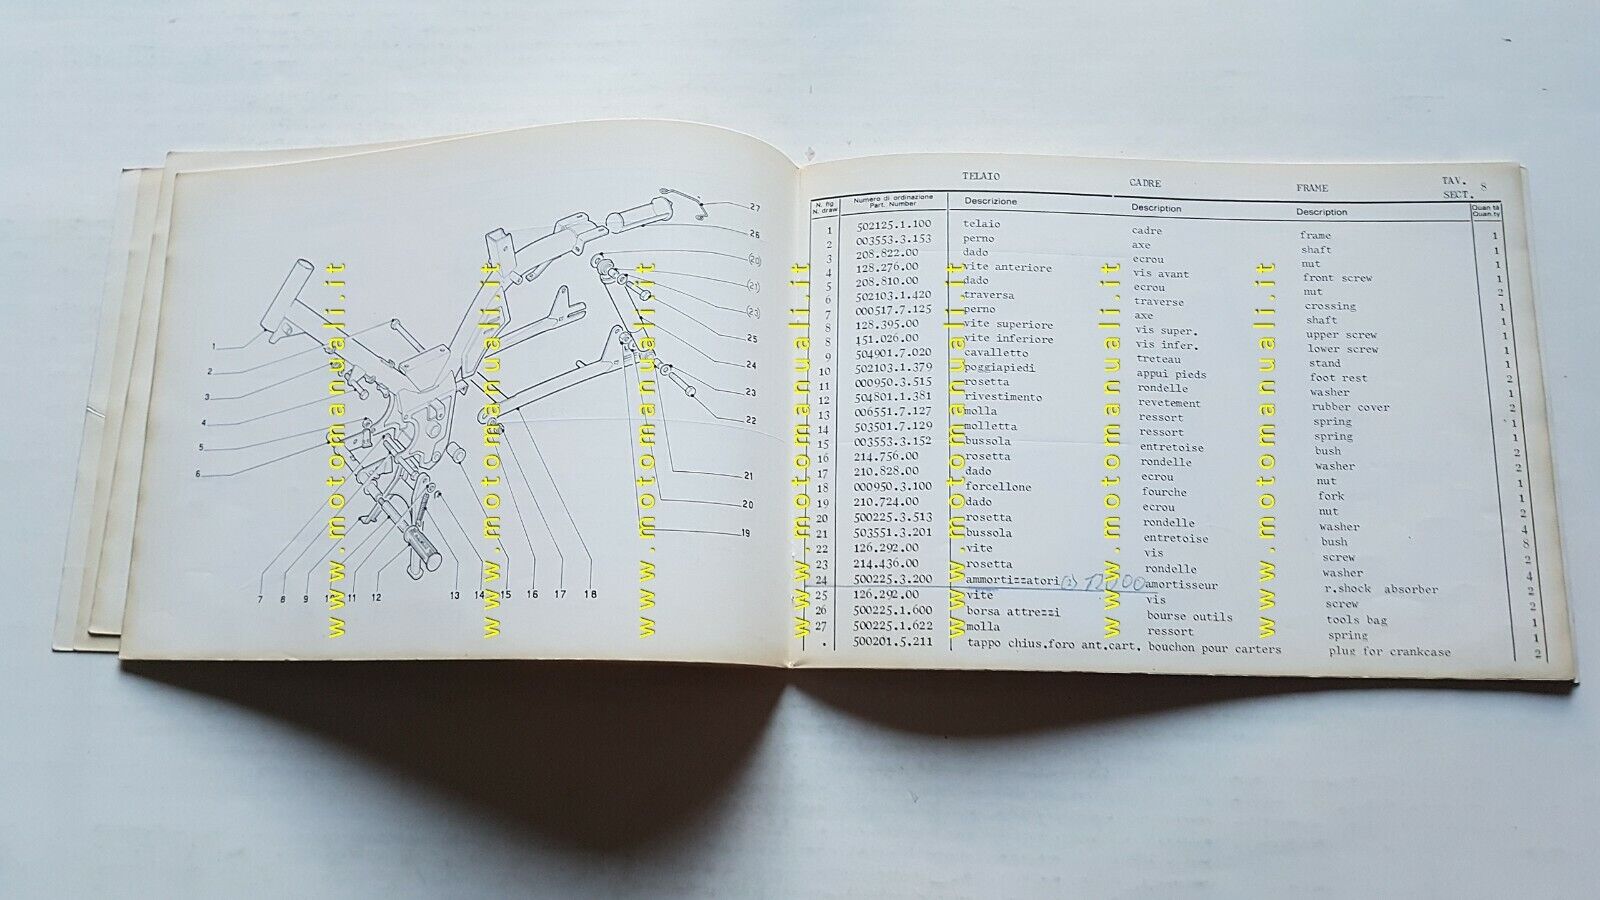 TELAIO CADRE FRAME TAV. SECT. 8
N. fig N. draw Numero di ordinazione Part. Number Descrizione Description Description Quantità Quan.ty
1 502125.1.100 telaio cadre frame 1
2 003553.3.153 perno axe shaft 1
3 208.822.00 dado ecrou nut 1
4 128.276.00 vite anteriore vis avant front screw 1
5 208.810.00 dado ecrou nut 2
6 502103.1.420 traversa traverse crossing 1
7 000517.7.125 perno axe shaft 1
8 128.395.00 vite superiore vis super. upper screw 1
8 151.026.00 vite inferiore vis infer. lower screw 1
9 504901.7.020 cavalletto treteau stand 1
10 502103.1.379 poggiapiedi appui pieds foot rest 2
11 000950.3.515 rosetta rondelle washer 1
12 504801.1.381 rivestimento revetement rubber cover 2
13 006551.7.127 molla ressort spring 1
14 503501.7.129 molletta ressort spring 1
15 003553.3.152 bussola entretoise bush 2
16 214.756.00 rosetta rondelle washer 2
17 210.828.00 dado ecrou nut 1
18 000950.3.100 forcellone fourche fork 1
19 210.724.00 dado ecrou nut 2
20 500225.3.513 rosetta rondelle washer 4
21 503551.3.201 bussola entretoise bush 8
22 126.292.00 vite vis screw 2
23 214.436.00 rosetta rondelle washer 4
24 500225.3.200 ammortizzatori amortisseur r.shock absorber 2
25 126.292.00 vite vis screw 2
26 500225.1.600 borsa attrezzi bourse outils tools bag 1
27 500225.1.622 molla ressort spring 1
. 500201.5.211 tappo chius.foro ant.cart. bouchon pour carters plug for crankcase 2
27
26
(20)
(21)
(23)
25
24
23
22
21
20
19
1
2
3
4
5
6
7 8 9 10 11 12 13 14 15 16 17 18
www.motomanuali.it
www.motomanuali.it
www.motomanuali.it
www.motomanuali.it
www.motomanuali.it
www.motomanuali.it
www.motomanuali.it